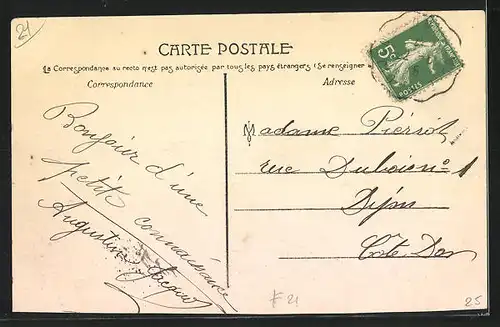 21
CARTE POSTALE
La Correspondance au recto n'est pas autorisée par tous les pays étrangers (Se renseigner
Correspondance
Adresse
5c
POSTES
Bonjour d'une
petite connaissance
Augustine Jacquot
Madame Piérrot
rue Dubois n° 1
Dijon
Côte Dor
F 21
25